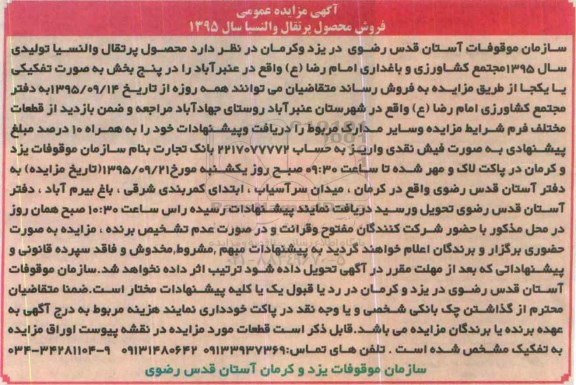 آگهی مزایده عمومی
فروش محصول پرتقال والنسیا سال ۱۳۹۵
سازمان موقوفات آستان قدس رضوی در یزد وکرمان در نظر دارد محصول پرتقال والنسیا تولیدی
سال ۱۳۹۵مجتمع کشاورزی و باغداری امام رضا (ع) واقع در عنبرآباد را در پنج بخش به صورت تفکیکی
یا یکجا از طریق مزایده به فروش رساند متقاضیان می توانند همه روزه از تاریخ ۱۳۹۵/۰۹/۱۴به دفتر
مجتمع کشاورزی امام رضا (ع) واقع در شهرستان عنبرآباد روستای جهادآباد مراجعه و ضمن بازدید از قطعات
مختلف فرم شرایط مزایده وسایر مدارک مربوط را دریافت وپیشنهادات خود را به همراه ۱۰ درصد مبلغ
پیشنهادی به صورت فیش نقدی واریز به حساب ۲۲۱۷۰۷۷۷۷۲ بانک تجارت بنام سازمان موقوفات یزد
و کرمان در پاکت لاک و مهر شده تا ساعت ۰۹:۳۰ صبح روز یکشنبه مورخ۱۳۹۵/۰۹/۲۱(تاریخ مزایده) به
دفتر آستان قدس رضوی واقع در کرمان ، میدان سرآسیاب ، ابتدای کمربندی شرقی ، باغ بیرم آباد ، دفتر
آستان قدس رضوی تحویل ورسید دریافت نمایند پیشنهادات رسیده راس ساعت ۱۰:۳۰ صبح همان روز
در محل مذکور با حضور شرکت کنندگان مفتوح وقرائت و در صورت عدم تشخیص برنده ، مزایده به صورت
حضوری برگزار و برندگان اعلام خواهند گردید. به پیشنهادات مبهم ,مشروط,مخدوش و فاقد سپرده قانونی و
پیشنهاداتی که بعد از مهلت مقرر در آگهی تحویل داده شود ترتیب اثر داده نخواهد شد.سازمان موقوفات
آستان قدس رضوی در یزد و کرمان در رد یا قبول یک یا کلیه پیشنهادات مختار است.ضمنا متقاضیان
محترم از گذاشتن چک بانکی شخصی و یا وجه نقد در پاکت خودداری نمایند هزینه مربوط به درج آگهی به
عهده برنده یا برندگان مزایده می باشد.قابل ذکر است قطعات مورد مزایده در نقشه پیوست اوراق مزایده
به تفکیک مشخص شده است . تلفن های تماس:۰۹۱۳۳۹۳۷۳۶۹ ۰۹۱۳۱۴۸۰۶۴۲ ۰۳۴-۳۴۲۸۱۱۰۴-۹
سازمان موقوفات یزد و کرمان آستان قدس رضوی